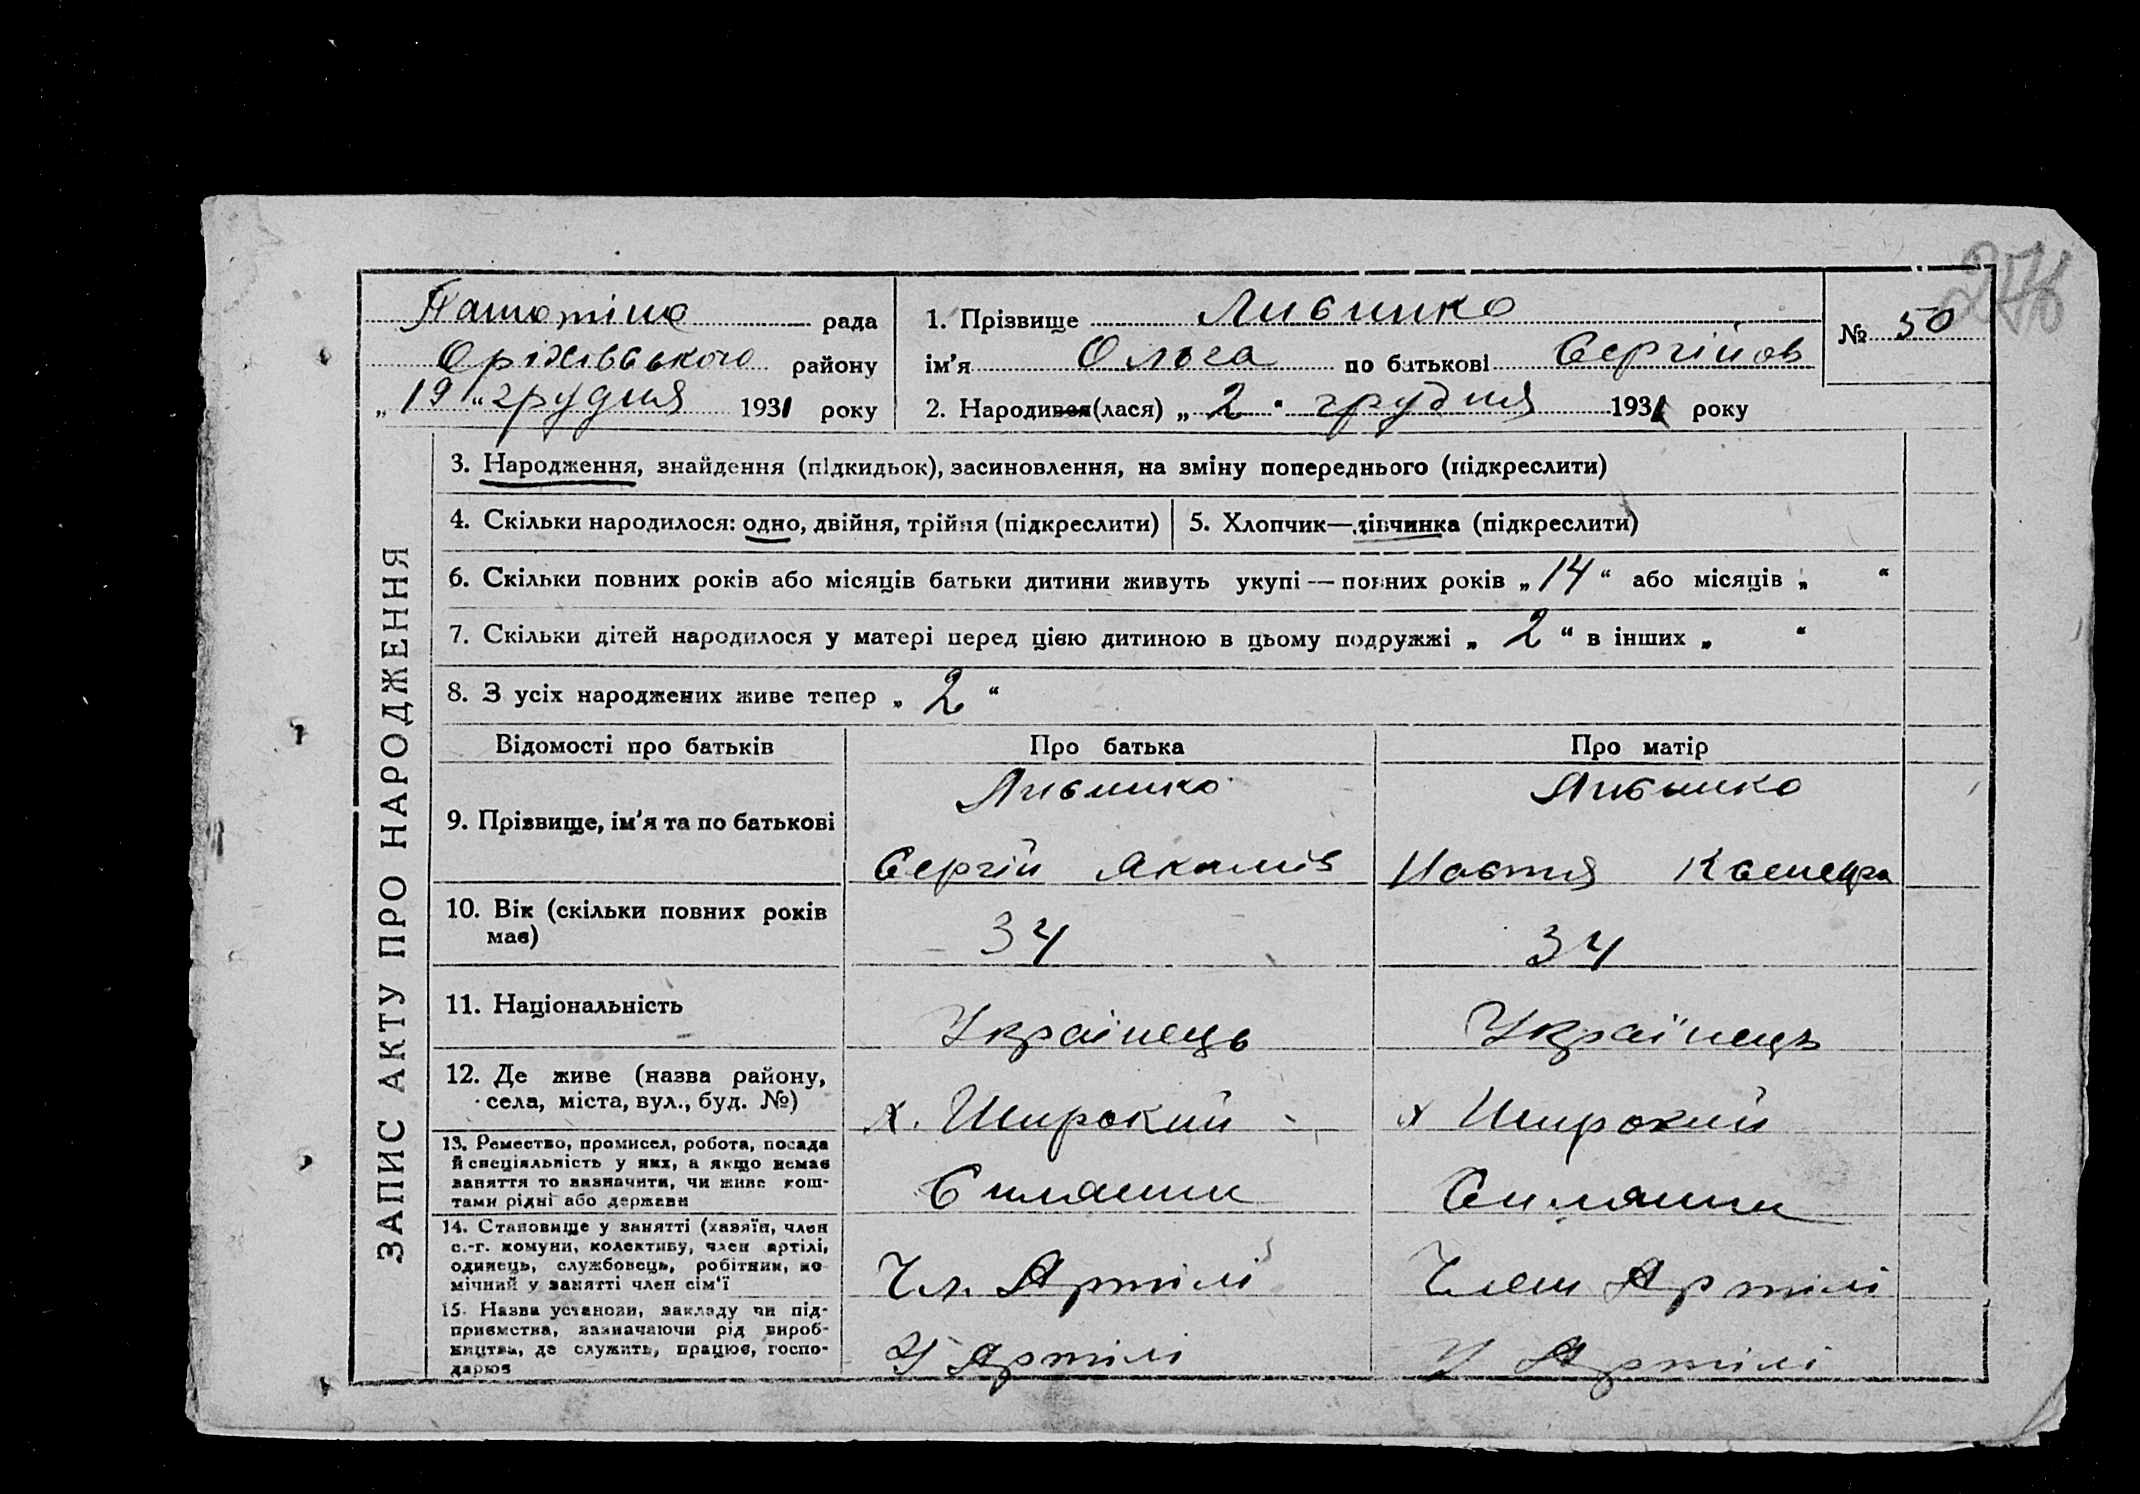 276
рада
1. Прізвище Ливишко
№ 50
Оріхівського району
ім'я Ольга по батькові Сергійов
„ 19 " грудня 1931 року
2. Народився(лася) „ 2 " грудня 1931 року
ЗАПИС АКТУ ПРО НАРОДЖЕННЯ
3. Народження, знайдення (підкидьок), засиновлення, на зміну попереднього (підкреслити)
4. Скільки народилося: одно, двійня, трійня (підкреслити)
5. Хлопчик—дівчинка (підкреслити)
6. Скільки повних років або місяців батьки дитини живуть укупі — повних років „ 14 “ або місяців „ “
7. Скільки дітей народилося у матері перед цією дитиною в цьому подружжі „ 2 “ в інших „ “
8. З усіх народжених живе тепер „ 2 “
Відомості про батьків
Про батька
Про матір
9. Прізвище, ім'я та по батькові
Ливишко
Сергій Якимів
Ливишко
Настя
10. Вік (скільки повних років
має)
34
34
11. Національність
Українець
Українець
12. Де живе (назва району,
села, міста, вул., буд. №)
х. Широкий
х Широкий
13. Ремество, промисел, робота, посада
й спеціяльність у них, а якщо немає
заняття то визначити, чи живе кош-
тами рідні або держави
14. Становище у занятті (хазяїн, член
с.-г. комуни, колективу, член артілі,
одинець, службовець, робітник, по-
мічний у занятті член сім'ї
Чл. Артілі
Член Артілі
15. Назва установи, закладу чи під-
приємства, зазначаючи рід вироб-
ництва, де служить, працює, госпо-
дарює
У Артілі
У Артілі